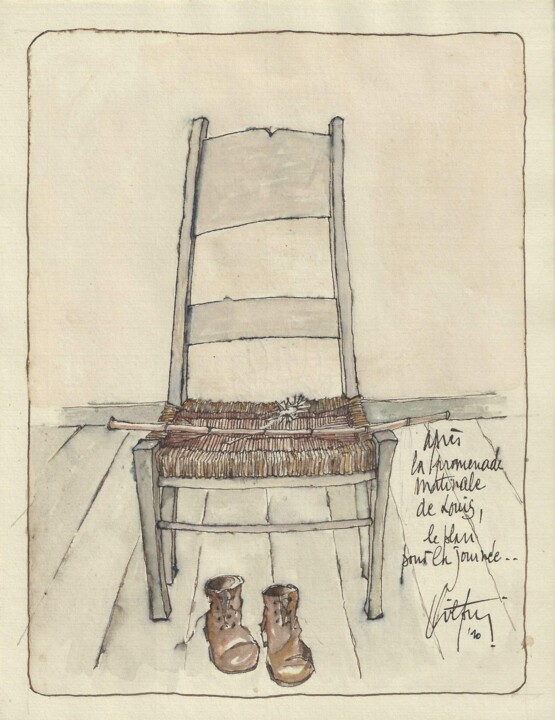 Après
la promenade
matinale
de Louis,
le plan
pour la journée..
'10